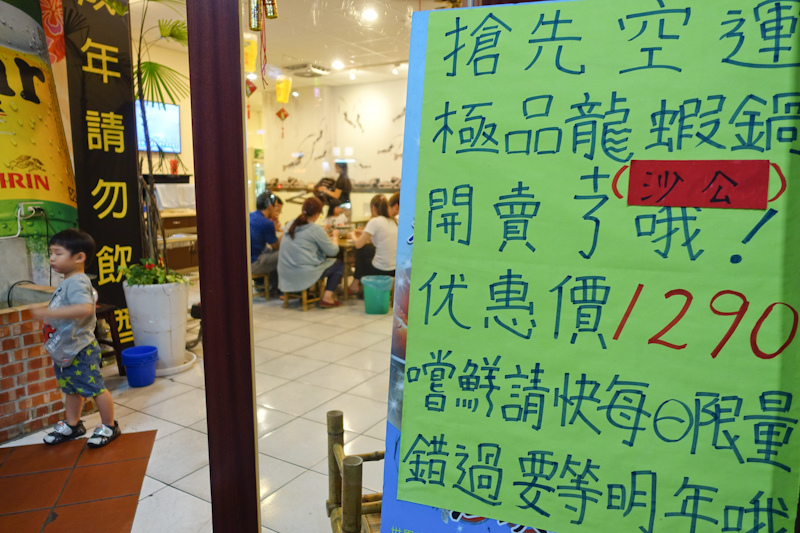 年請勿飲
KIRIN
搶先空運
極品龍蝦鍋
(沙公)
開賣了哦!
优惠價1290
嚐鮮請快每日限量
錯過要等明年哦